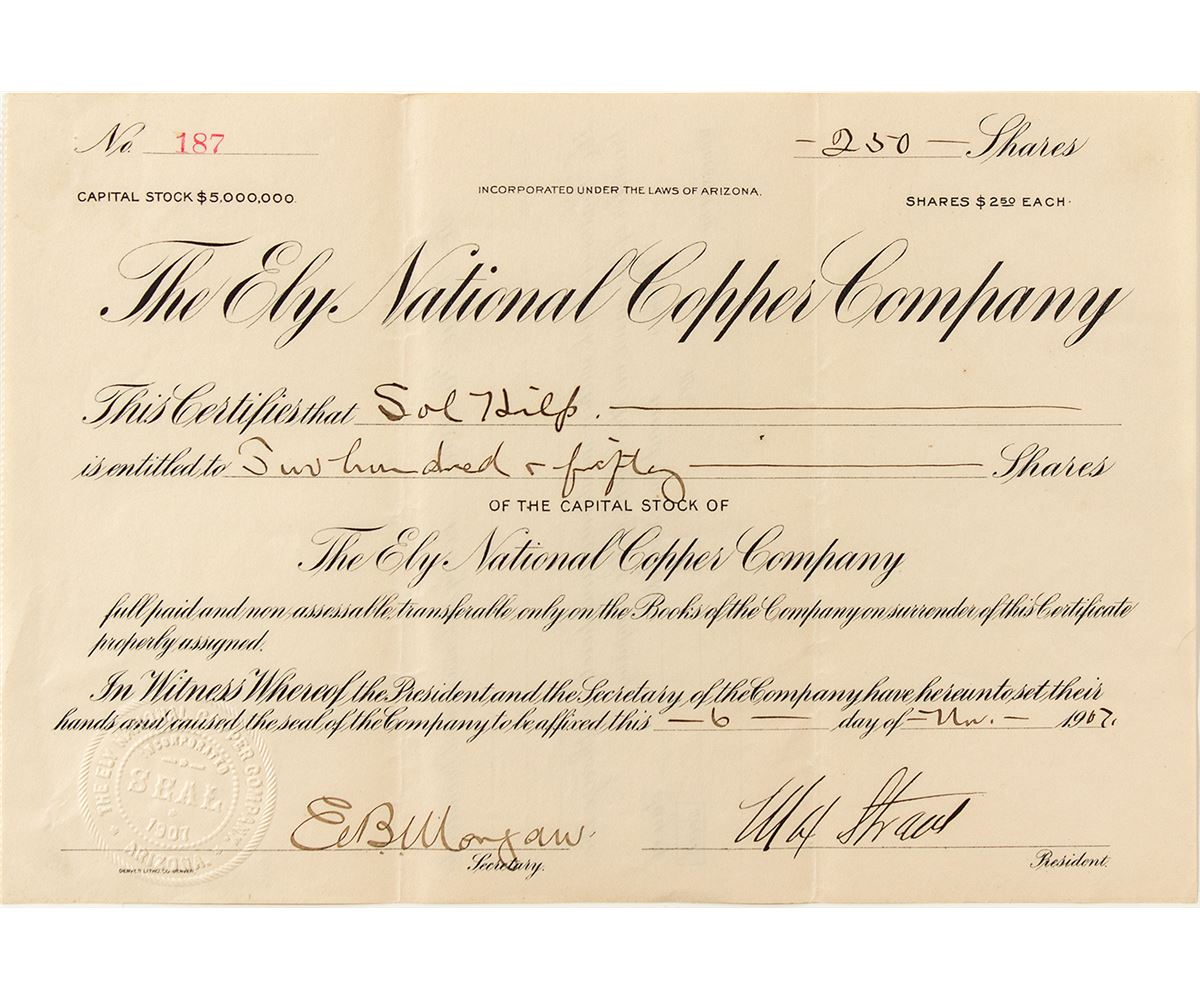 No. 187
- 250 - Shares
CAPITAL STOCK $5,000,000.
INCORPORATED UNDER THE LAWS OF ARIZONA.
SHARES $2.50 EACH.
The Ely National Copper Company
This Certifies that Sol Hilp.
is entitled to Two hundred & fifty Shares
OF THE CAPITAL STOCK OF
The Ely National Copper Company
full paid and non assessable, transferable only on the Books of the Company on surrender of this Certificate
properly assigned.
In Witness Whereof, the President and the Secretary of the Company have hereunto set their
hands and caused the seal of the Company to be affixed this - 6 - day of - Nov. - 1907.
THE ELY NATIONAL COPPER COMPANY
INCORPORATED
SEAL
1907
ARIZONA.
E. B. Morgan
Secretary.
Max Straus
President.
DENVER LITHO. CO. DENVER